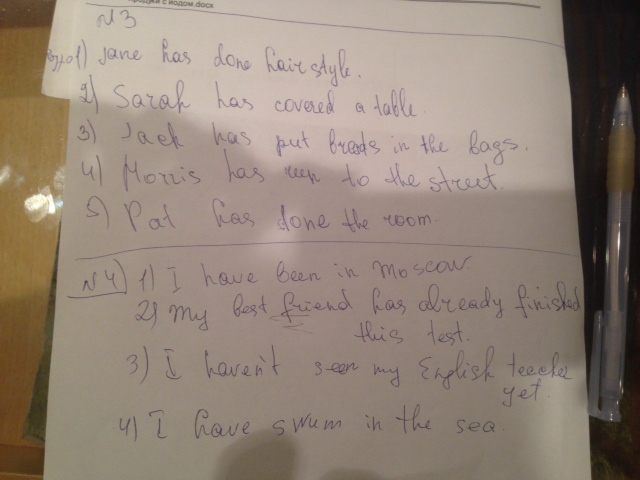 продук с иодом.docx
N3
1) Jane has done hairstyle.
2) Sarah has covered a table.
3) Jack has put breads in the bags.
4) Morris has run to the street.
5) Pat has done the room.
N4) 1) I have been in Moscow.
2) My best friend has already finished
this test.
3) I haven't seen my English teacher
yet.
4) I have swum in the sea.